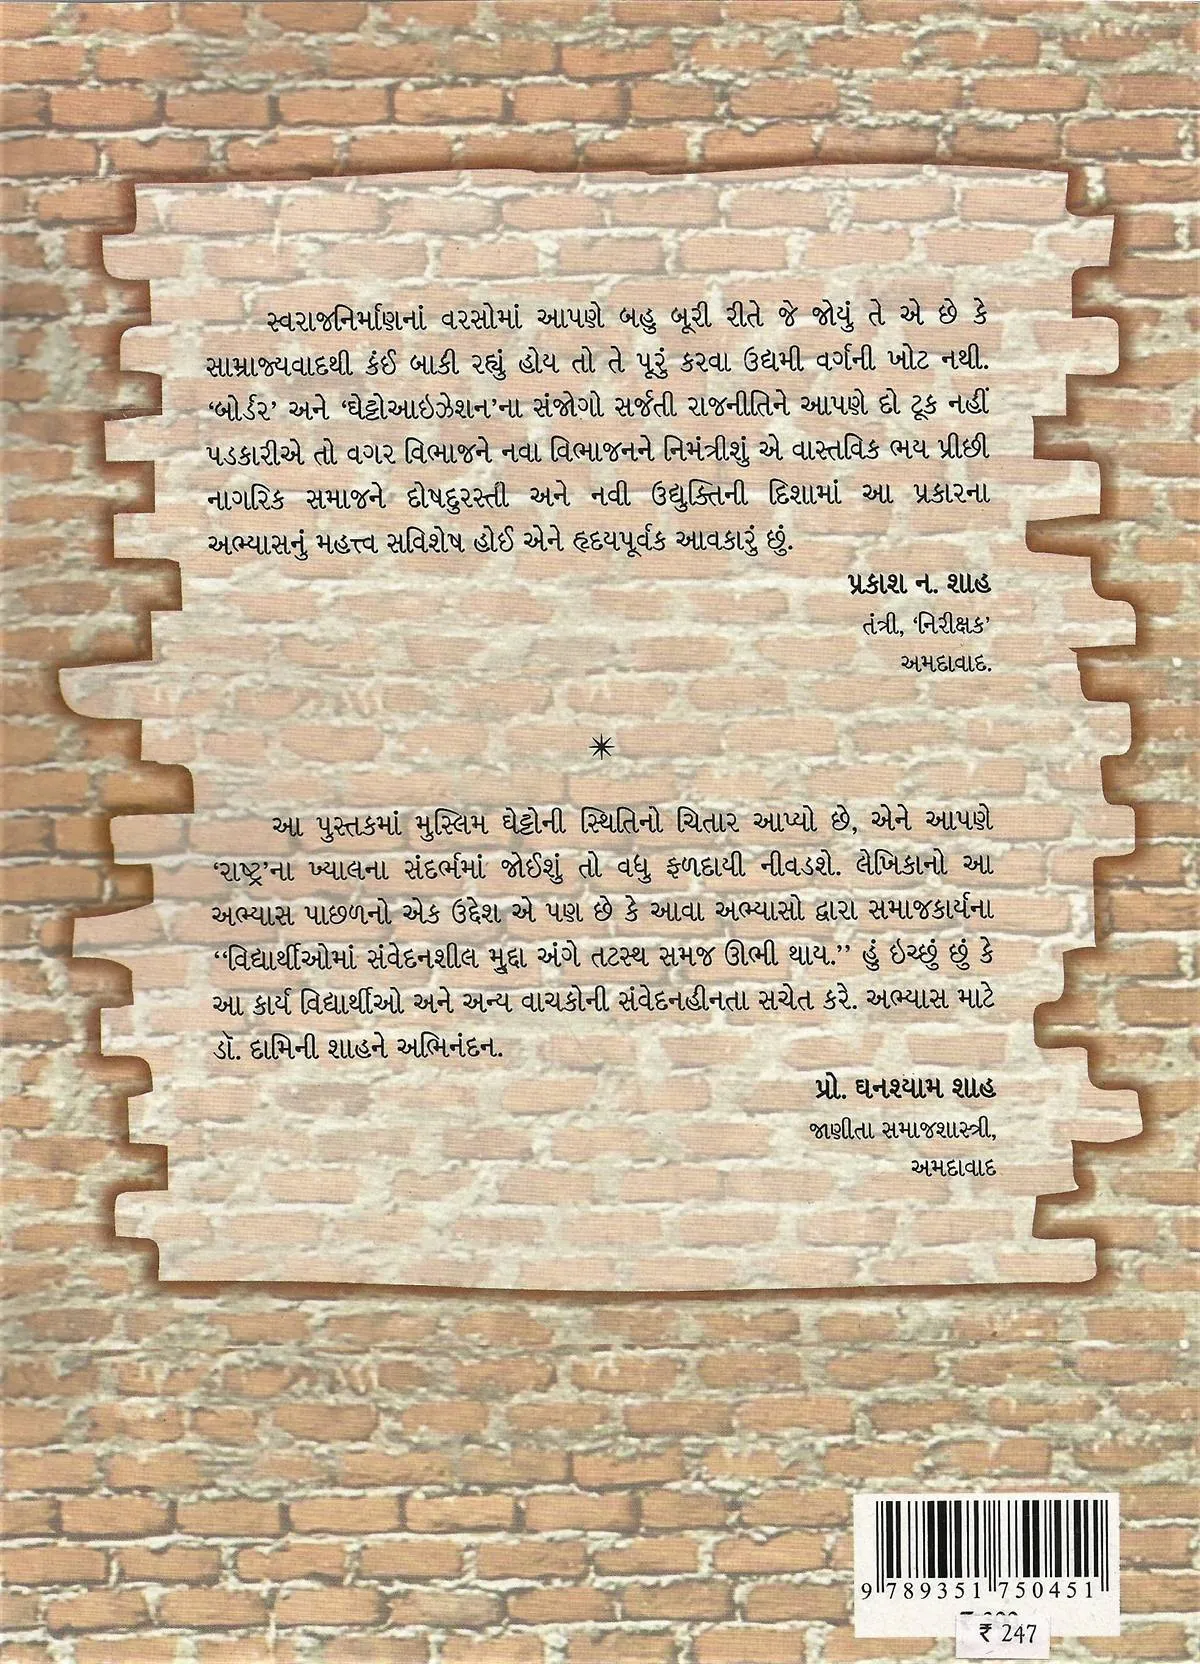 સ્વરાજનિર્માણનાં વરસોમાં આપણે બહુ બૂરી રીતે જે જોયું તે એ છે કે
સામ્રાજ્યવાદથી કંઈ બાકી રહ્યું હોય તો તે પૂરું કરવા ઉદ્યમી વર્ગની ખોટ નથી.
‘બોર્ડર’ અને ‘ઘેટ્ટોઆઇઝેશન’ના સંજોગો સર્જતી રાજનીતિને આપણે દો ટૂક નહીં
પડકારીએ તો વગર વિભાજને નવા વિભાજનને નિમંત્રીશું એ વાસ્તવિક ભય પ્રીછી
નાગરિક સમાજને દોષદુરસ્તી અને નવી ઉદ્યુક્તિની દિશામાં આ પ્રકારના
અભ્યાસનું મહત્ત્વ સવિશેષ હોઈ એને હૃદયપૂર્વક આવકારું છું.
પ્રકાશ ન. શાહ
તંત્રી, ‘નિરીક્ષક’
અમદાવાદ.
આ પુસ્તકમાં મુસ્લિમ ઘેટ્ટોની સ્થિતિનો ચિતાર આપ્યો છે, એને આપણે
‘રાષ્ટ્ર’ના ખ્યાલના સંદર્ભમાં જોઈશું તો વધુ ફળદાયી નીવડશે. લેખિકાનો આ
અભ્યાસ પાછળનો એક ઉદ્દેશ એ પણ છે કે આવા અભ્યાસો દ્વારા સમાજકાર્યના
“વિદ્યાર્થીઓમાં સંવેદનશીલ મુદ્દા અંગે તટસ્થ સમજ ઊભી થાય.” હું ઇચ્છું છું કે
આ કાર્ય વિદ્યાર્થીઓ અને અન્ય વાચકોની સંવેદનહીનતા સચેત કરે. અભ્યાસ માટે
ડૉ. દામિની શાહને અભિનંદન.
પ્રો. ઘનશ્યામ શાહ
જાણીતા સમાજશાસ્ત્રી,
અમદાવાદ
9 789351 750451
₹ 247